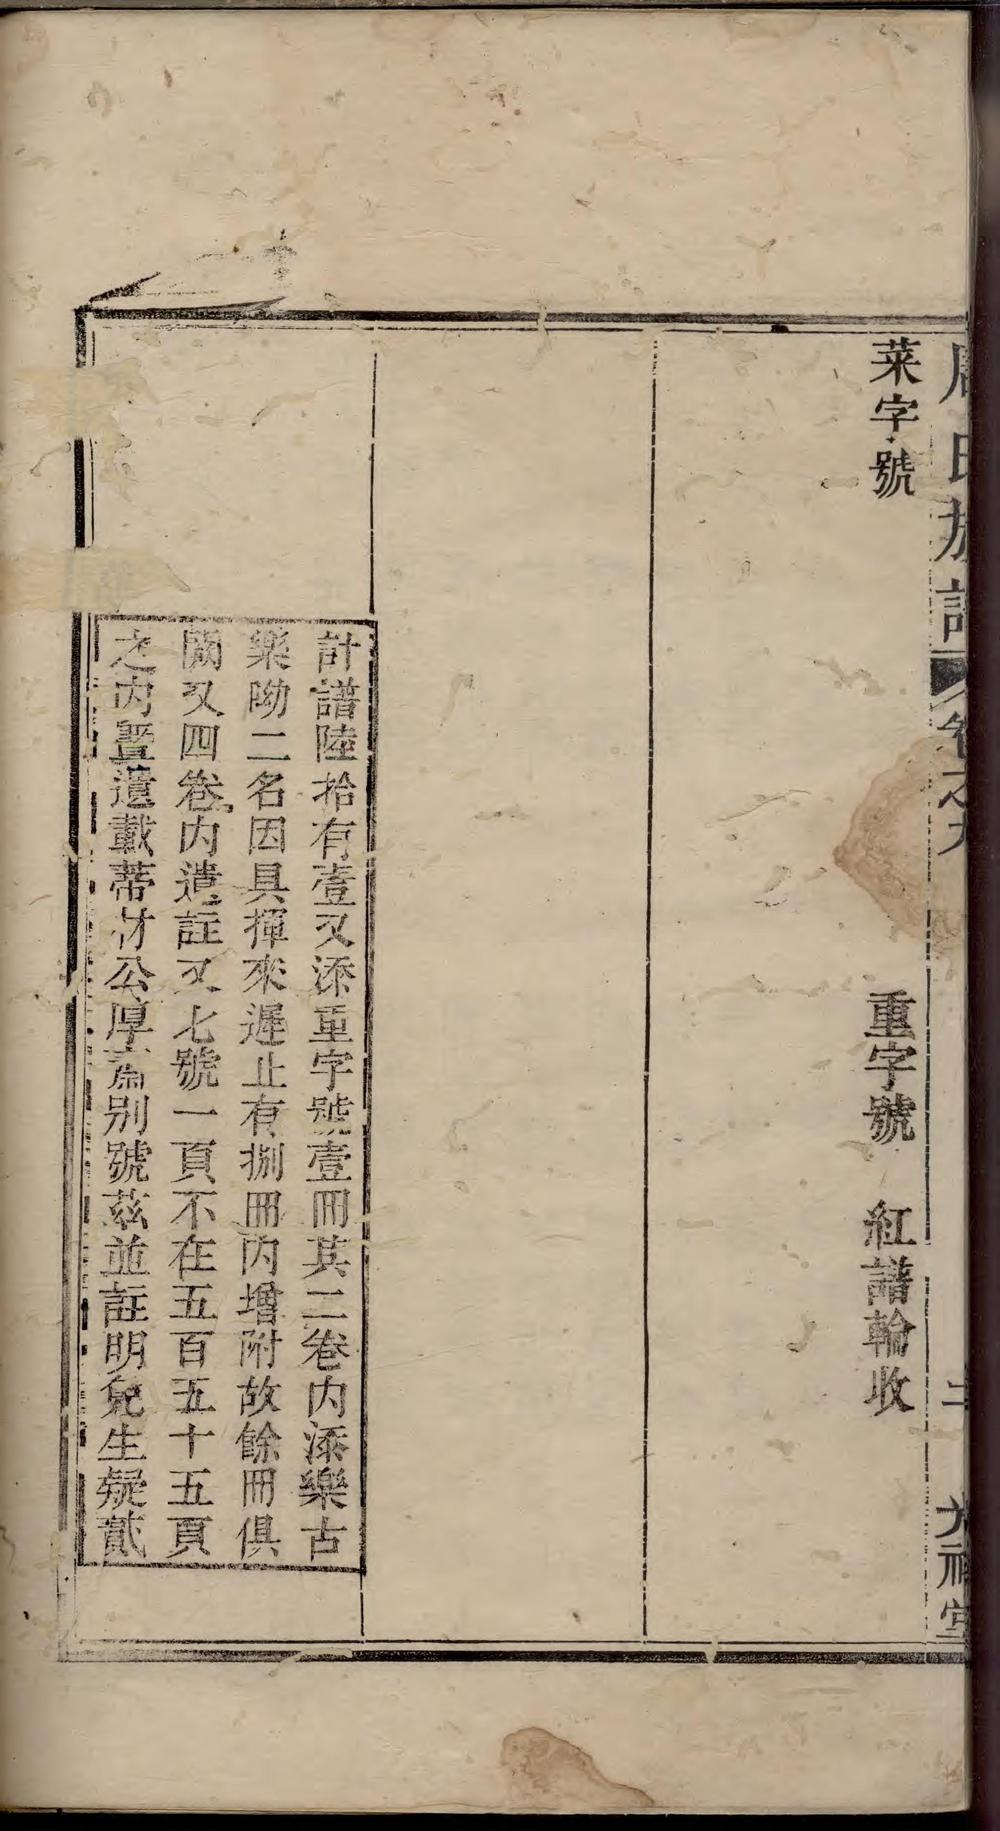 周氏族譜 卷之九 光裕堂
菜字號 重字號 紅譜輪收
計譜陸拾有壹又添重字號壹冊其二卷内添樂古
樂呦二名因具揮來遲止有捌冊内增附故餘冊俱
闕又四卷内遺註又七號一頁不在五百五十五頁
之内暨遺載蒂材公厚齋別號茲並註明免生疑貳